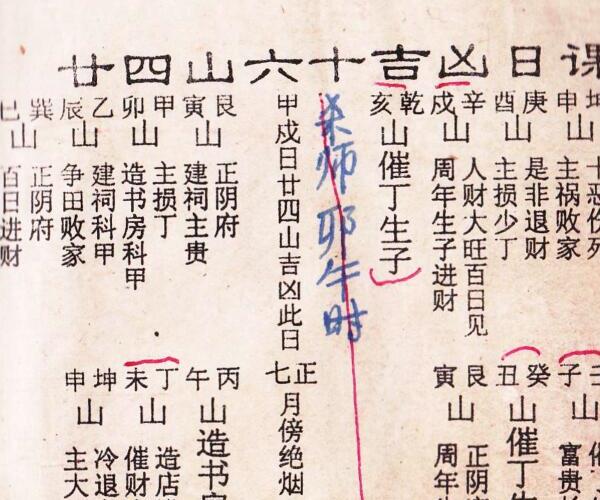 廿四山六十吉凶日课
坤申山
十恶伤死
主祸败家
庚酉山
是非退财
主损少丁
辛戍山
人财大旺百日见
周年生子进财
乾亥山催丁生子
杀师 耶午时
甲戍日廿四山吉凶此日
艮寅山
正阴府
建祠主贵
甲卯山
主损丁
造书房科甲
乙辰山
建祠科甲
争田败家
巽巳山
正阴府
百日进财
壬子山
富贵
癸丑山催丁生
艮寅山
正阴
周年
正七月傍绝烟
丙午山造书房
丁未山
造店
催财
坤申山
冷退
主大